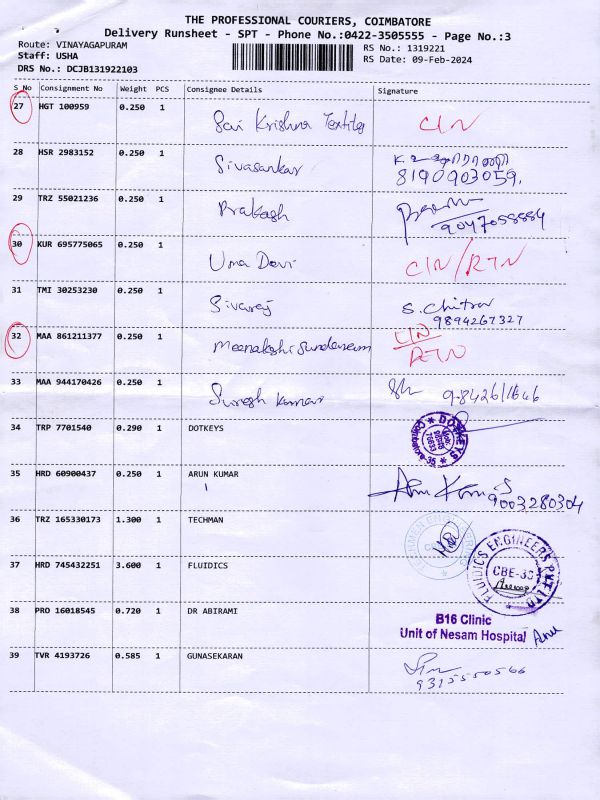 THE PROFESSIONAL COURIERS, COIMBATORE
Delivery Runsheet - SPT - Phone No.:0422-3505555 - Page No.:3
Route: VINAYAGAPURAM
RS No.: 1319221
Staff: USHA
RS Date: 09-Feb-2024
DRS No.: DCJB131922103
S No Consignment No Weight PCS Consignee Details Signature
27 HGT 100959 0.250 1 Sai Krishna Textiles CIN
28 HSR 2983152 0.250 1 Sivasankar
8190903059.
29 TRZ 55021236 0.250 1 Prakash
9047058884
30 KUR 695775065 0.250 1 Uma Devi CIN/RTN
31 TMI 30253230 0.250 1 Sivaraj S. Chitra
9894267327
32 MAA 861211377 0.250 1 Meenakshi Sundaram CIN
RTN
33 MAA 944170426 0.250 1 Suresh Kumar
34 TRP 7701540 0.290 1 DOTKEYS DOTKEYS
35 HRD 60900437 0.250 1 ARUN KUMAR Arun Kumar S
9003280304
36 TRZ 165330173 1.300 1 TECHMAN
37 HRD 745432251 3.600 1 FLUIDICS FLUIDICS ENGINEERS PVT LTD
CBE-35
38 PRO 16018545 0.720 1 DR ABIRAMI B16 Clinic
Unit of Nesam Hospital
39 TVR 4193726 0.585 1 GUNASEKARAN